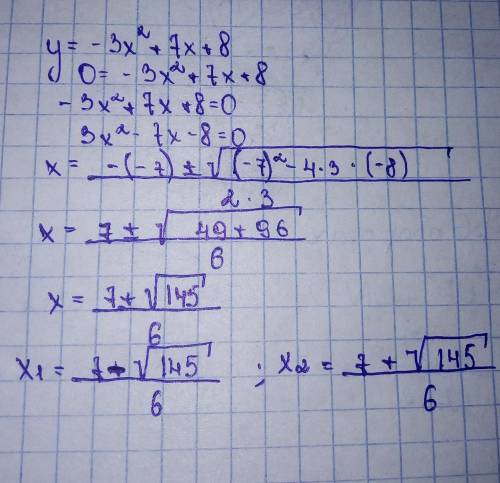 y = - 3x² + 7x + 8
0 = - 3x² + 7x + 8
- 3x² + 7x + 8 = 0
3x² - 7x - 8 = 0
x = -(-7) ± √(-7)² - 4·3·(-8)
2·3
x = 7 ± √49 + 96
6
x = 7 + √145
6
x1 = 7 - √145 ; x2 = 7 + √145
6 6